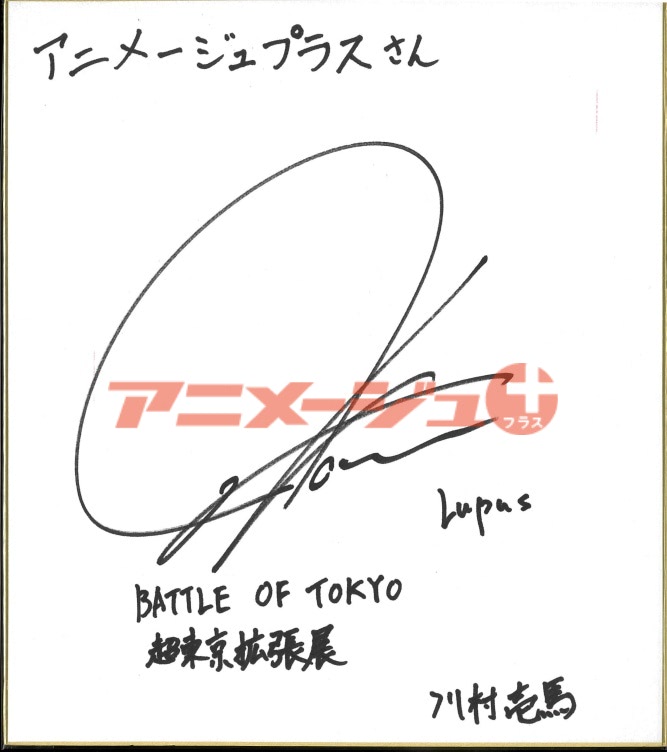 アニメージュプラスさん
アニメージュ+
プラス
Lupus
BATTLE OF TOKYO
超東京拡張展
川村壱馬